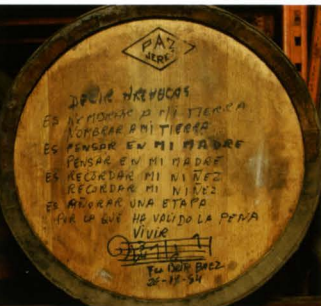 PAZ
JEREZ
DECIR AREHUCAS
ES NOMBRAR A MI TIERRA
NOMBRAR A MI TIERRA
ES PENSAR EN MI MADRE
PENSAR EN MI MADRE
ES RECORDAR MI NIÑEZ
RECORDAR MI NIÑEZ
ES AÑORAR UNA ETAPA
POR LA QUE HA VALIDO LA PENA
VIVIR
BAEZ